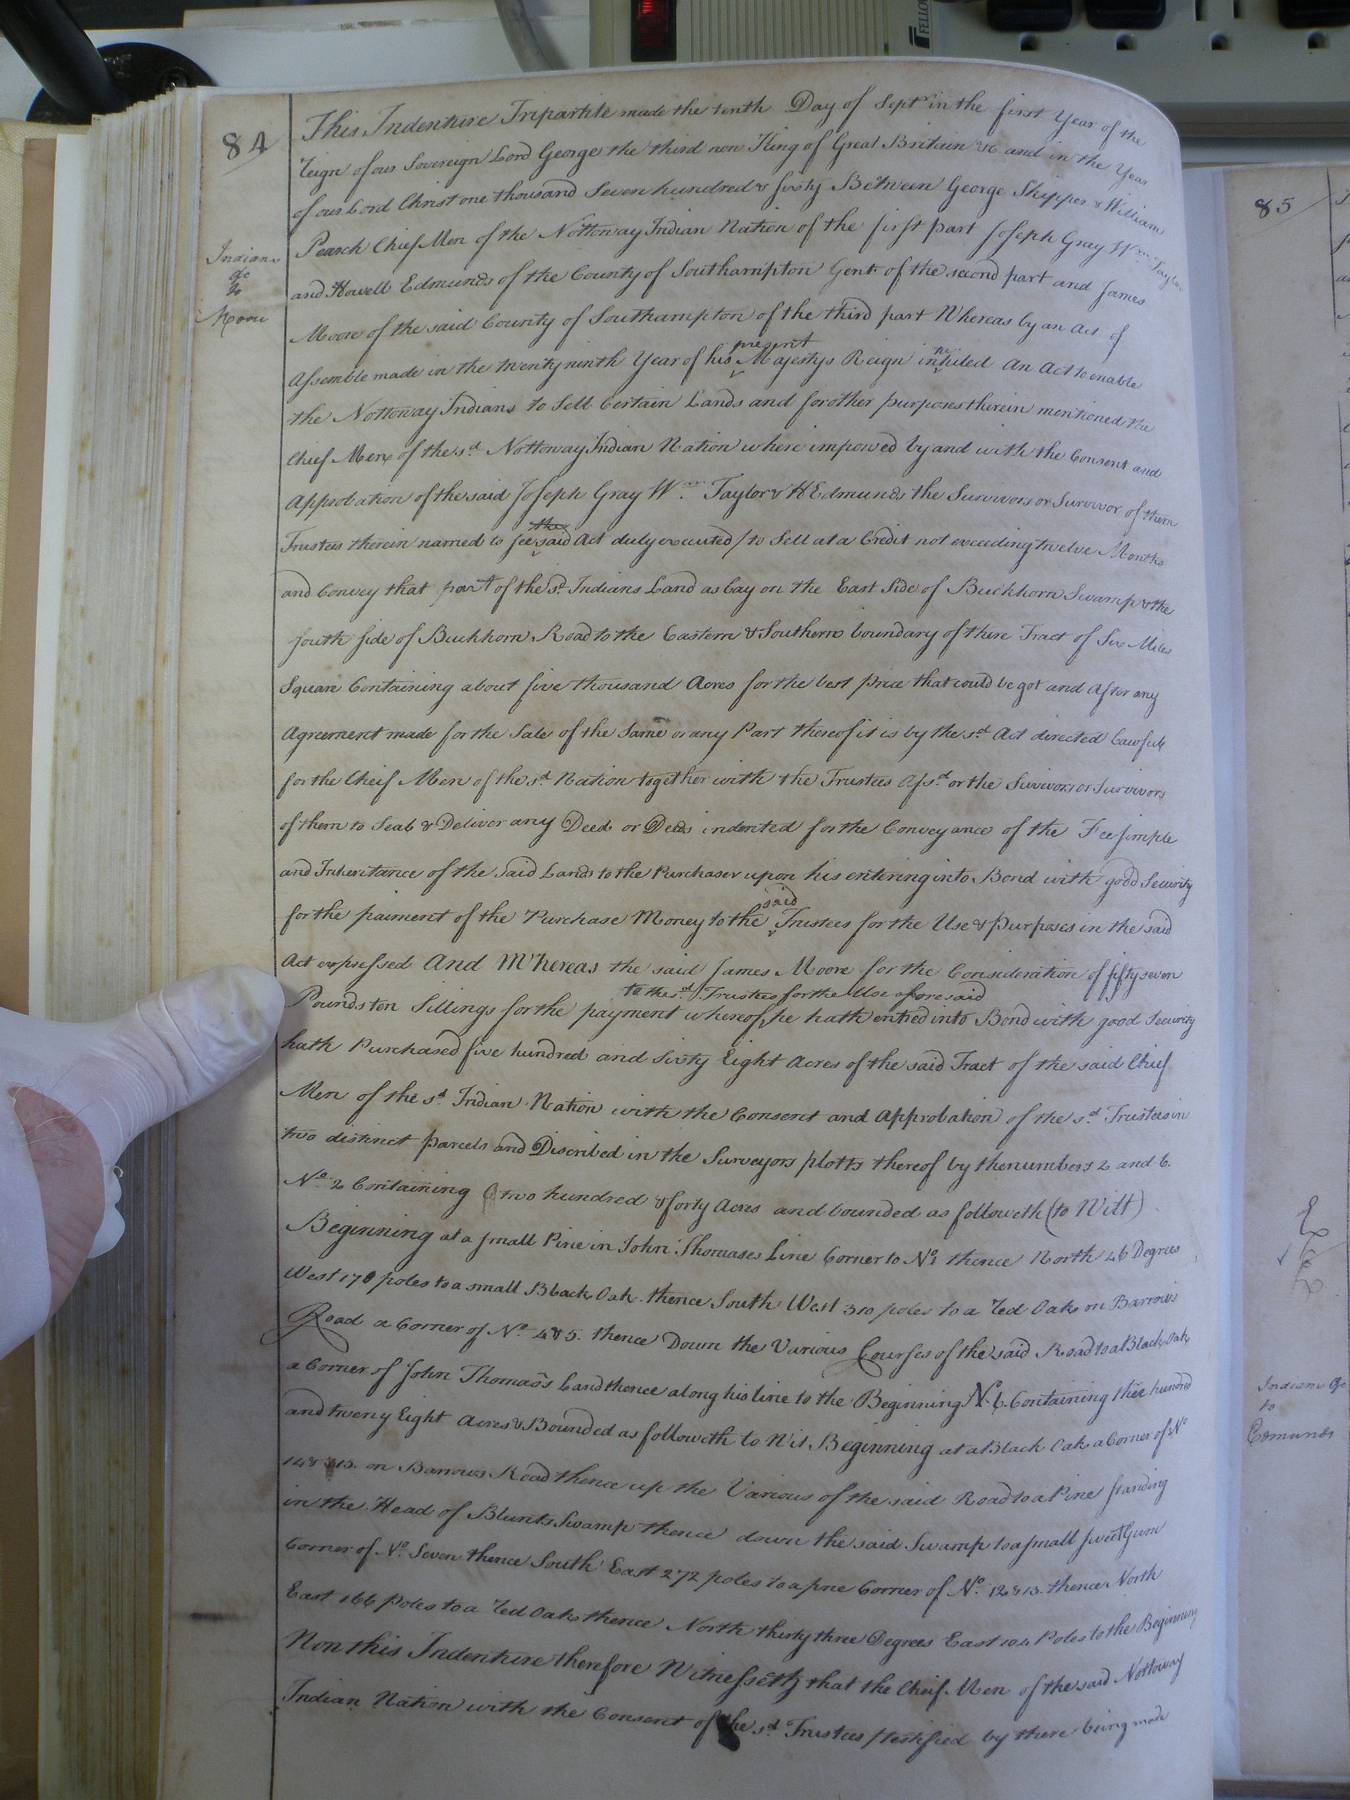 84
This Indenture Tripartite made the tenth Day of Sept in the first Year of the
Reign of our Sovereign Lord George the third now King of Great Britain &c and in the Year
of our Lord Christ one thousand Seven hundred & sixty Between George Skipper & William
Pearch Chief Men of the Nottoway Indian Nation of the first part Joseph Gray Wm Taylor
and Howell Edmunds of the County of Southampton Gent of the second part and James
Moore of the said County of Southampton of the third part Whereas by an Act of
present
Assemble made in the twenty ninth Year of his Majestys Reign intituled An Act to enable
the Nottoway Indians to Sell Certain Lands and for other purposes therein mentioned the
Chief Men of the sd Nottoway Indian Nation where impowed by and with the Consent and
Approbation of the said Joseph Gray Wm Taylor & H Edmunds the Survivors or Survivor of them
Trustees therein named to see the said Act duly executed / to Sell at a Credit not exceeding twelve Months
and Convey that part of the sd Indians Land as Lay on the East Side of Buckhorn Swamp & the
South side of Buckhorn Road to the Eastern & Southern boundary of there Tract of Six Miles
Square Containing about five thousand Acres for the best Price that could be got and After any
Agreement made for the Sale of the Same or any Part thereof it is by the sd Act directed Lawfull
for the Cheif Men of the sd Nation together with the Trustees Afsd or the Survivors or Survivors
of them to Seal & Deliver any Deed or Deeds indented for the Conveyance of the Fee simple
and Inheritance of the Said Lands to the Purchaser upon his entering into Bond with good Security
said
for the paiment of the Purchase Money to the Trustees for the Use & Purposes in the said
Act expressed And Whereas the said James Moore for the Consideration of fifty seven
to the sd Trustees for the Use aforesaid
Pounds ten Sillings for the payment whereof he hath entred into Bond with good Security
hath Purchased five hundred and Sixty Eight Acres of the said Tract of the said Chief
Men of the sd Indian Nation with the Consent and Approbation of the sd Trustees in
two distinct parcels and Discribed in the Surveyors plotts thereof by the numbers 2 and 6.
No 2 Containing two hundred & forty Acres and bounded as followeth (to Witt)
Beginning at a small Pine in John Thomases Line Corner to No 1 thence North 46 Degrees
West 178 poles to a small Black Oak thence South West 310 poles to a Red Oak on Barrows
Road a Corner of No 4 & 5. thence Down the Various Courses of the said Road to a Black Oak
a Corner of John Thomas's Land thence along his line to the Beginning No. 6. Containing three hundred
and tweny Eight Acres & Bounded as followeth to Wit Beginning at a Black Oak a Corner of No
14 & 15. on Barrows Road thence up the Various of the said Road to a Pine standing
in the Head of Blunts Swamp thence down the said Swamp to a small sweet Gum
Corner of No Seven thence South East 272 poles to a pne Corner of No. 12 & 13. thence North
East 166 Poles to a Red Oak thence North thirty three Degrees East 104 Poles to the Beginning
Now this Indenture therefore Witnesseth that the Cheif Men of the said Nottoway
Indian Nation with the Consent of the sd Trustees testified by there being made
Indians
&c
to
Moore
85
Indians &c
to
Edmunds